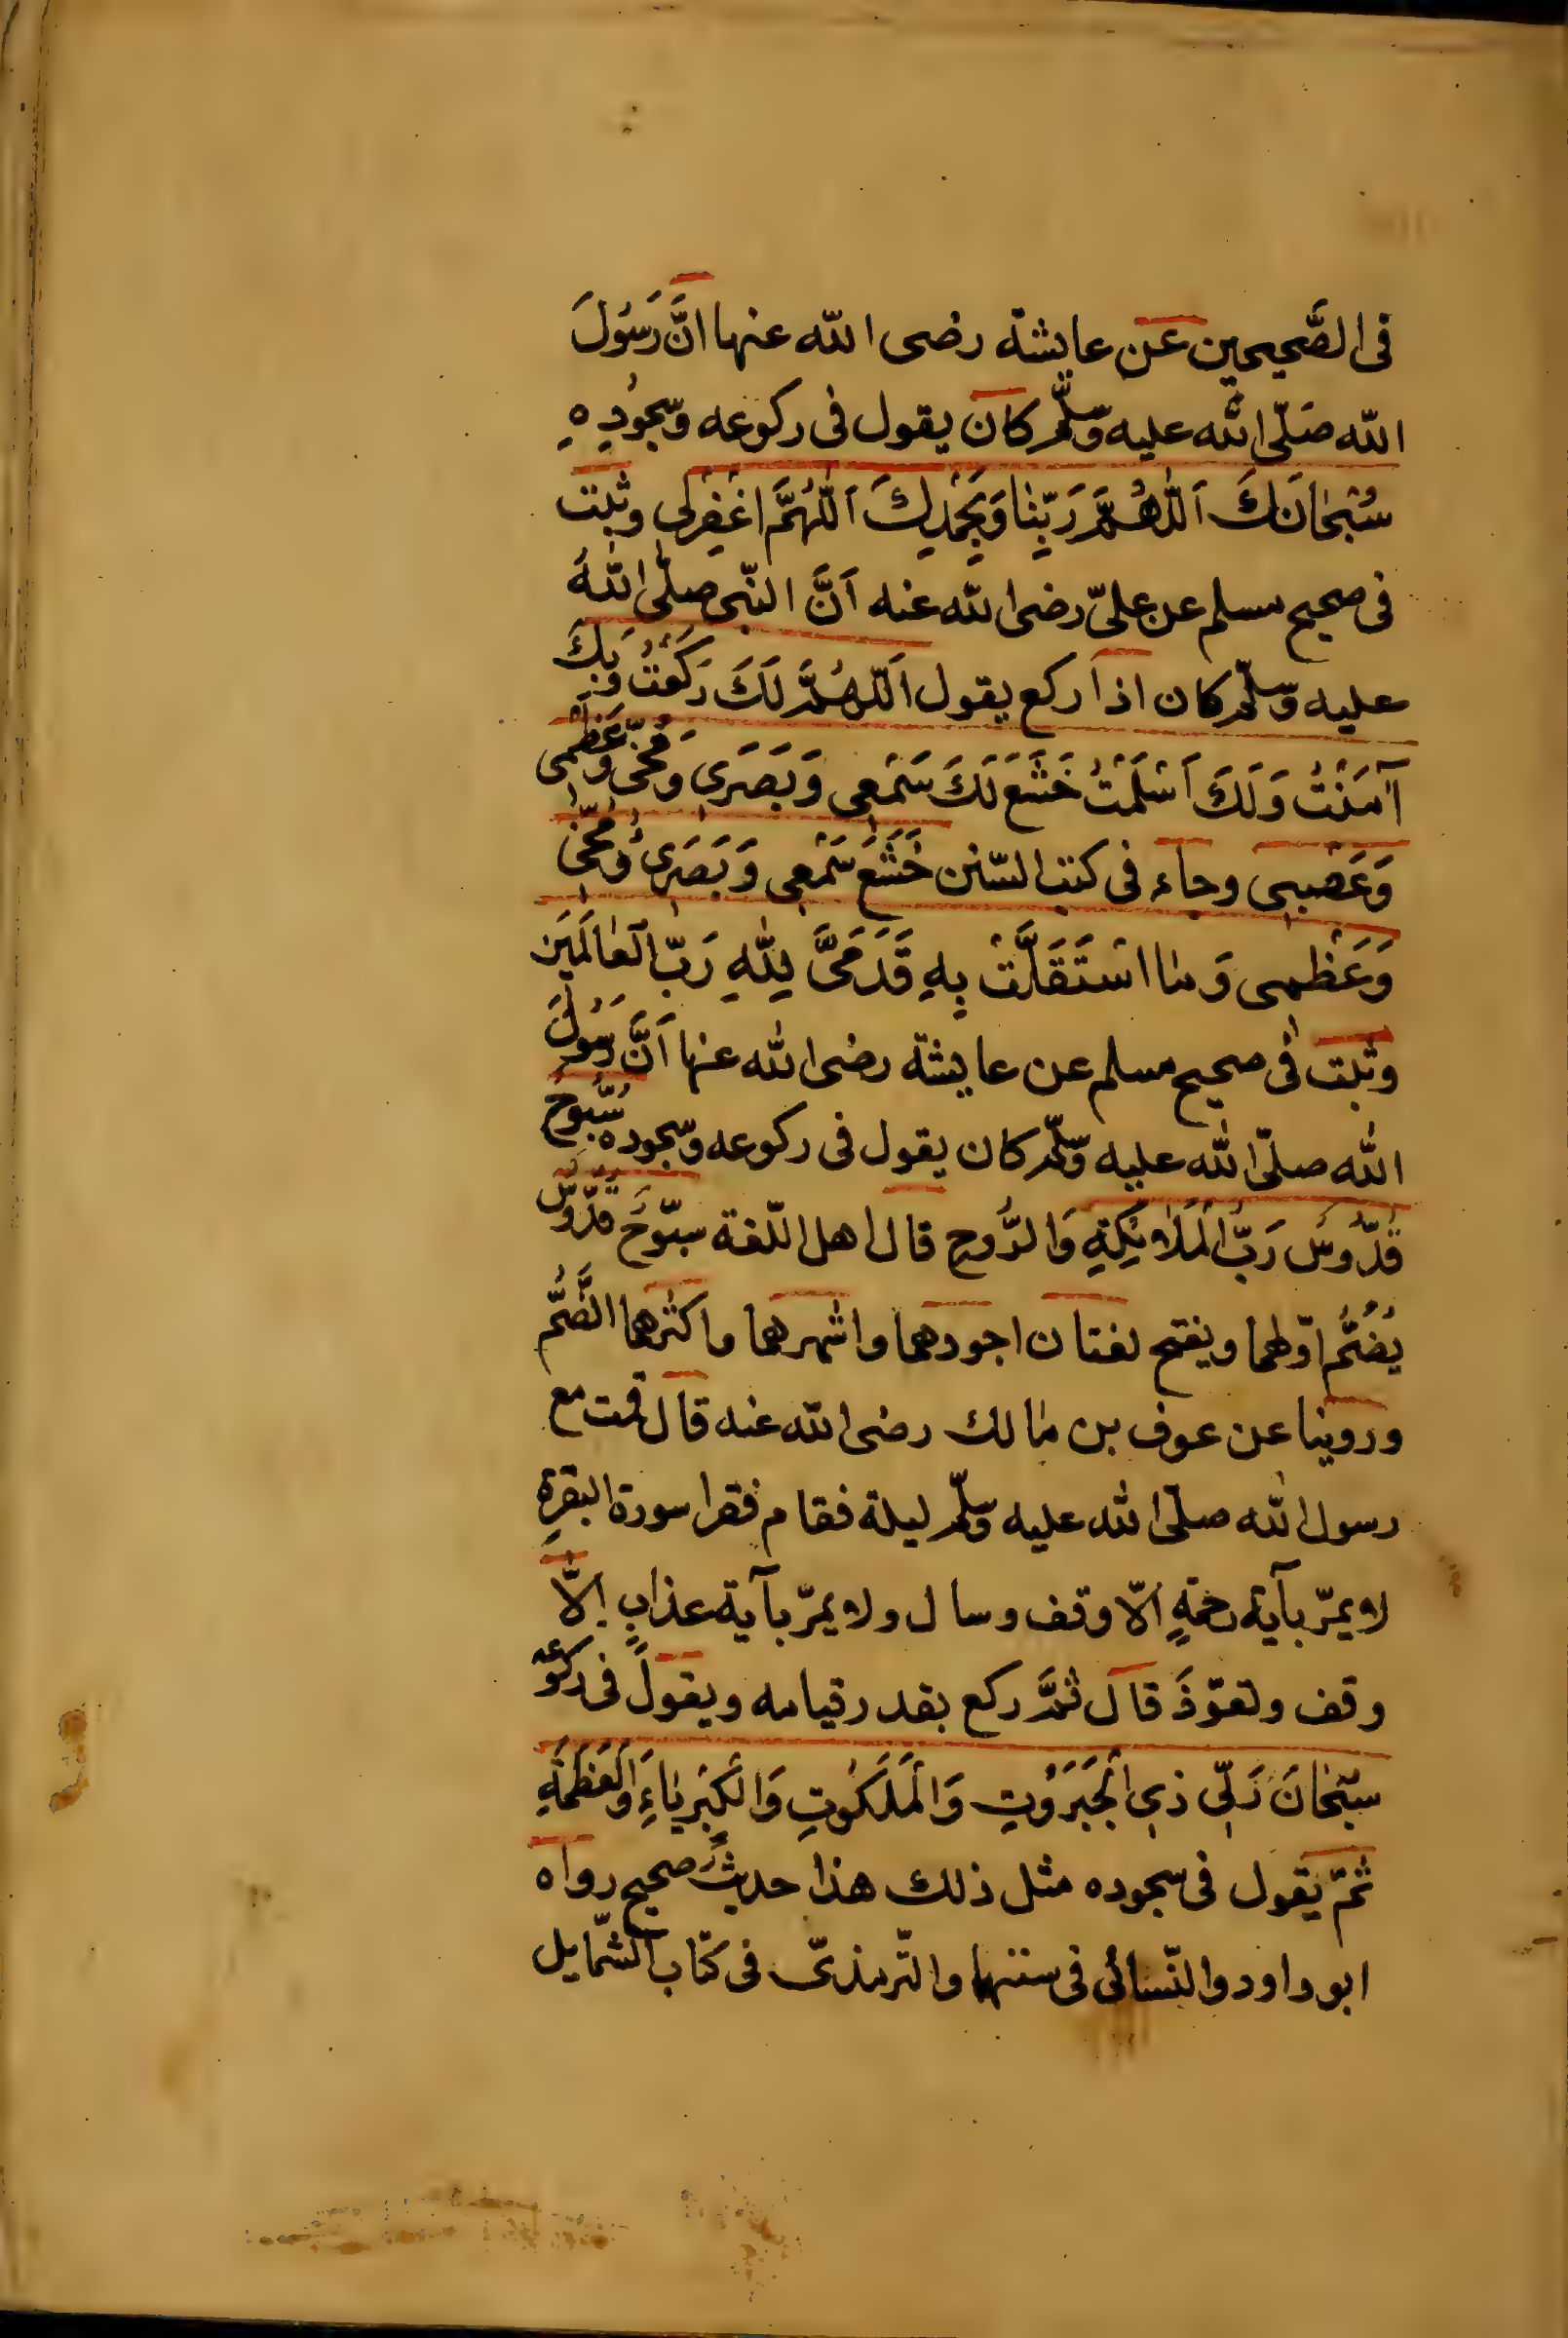 فى الصَّحيحين عَن عايشة رضى الله عنها انَّ رَسُولَ
الله صَلّى الله عليه وسلّم كان يقول فى ركوعه وسجُودِهِ
سُبْحٰانَكَ اَللّٰهُمَّ رَبِّنٰا وَبِحَمْدِكَ اَللّٰهُمَّ اغْفِرْلى وثبت
فى صحيح مسلم عن علىّ رضى الله عنه اَنَّ النّبى صلّى اللهُ
عليه وسلّم كان اذا ركع يقول اَللّهُمَّ لَكَ رَكَعْتُ وَبِكَ
آمَنْتُ وَلَكَ اَسْلَمْتُ خَشَعَ لَكَ سَمْعِى وَبَصَرِى وَمُخّى وَعَظْمِى
وَعَصَبِى وجاء فى كتب السّنن خَشَعَ سَمْعِى وَبَصَرِى وَمُخّى
وَعَظْمِى وَمٰا اسْتَقَلَّتْ بِهِ قَدَمَىَّ لِلّٰهِ رَبِّ الْعٰالَمَين
وثبت فى صحيح مسلم عن عايشة رضى الله عنها اَنَّ رَسُولَ
الله صلّى الله عليه وسلّم كان يقول فى ركوعه وسجوده سُبُّوحٌ
قُدُّوسٌ رَبُّ الْمَلٰائِكَةِ وَالرُّوحِ قال اهل اللّغة سبّوحٌ قدّوسٌ
يُضَمُّ اوّلهما ويفتح لغتان اجودهما واشهرهما واكثرهما الضَّمُّ
وروينا عن عوف بن مالك رضى الله عنه قال قمت مع
رسول الله صلّى الله عليه وسلّم ليلة فقام فقرا سورة البقرةِ
لا يمرّ بآية رحمةٍ الّا وقف وسال ولا يمرّ بآية عذابٍ الّا
وقف وتعوّذَ قال ثمَّ ركع بقدر قيامه ويقول فى ركوعه
سبْحٰانَ ذِى الْجَبَرَوُتِ وَالْمَلَكُوتِ وَالْكِبْرِيٰاءِ وَالْعَظَمَةِ
ثمّ يَقول فى سجوده مثل ذلك هذا حديثٌ صحيح رواه
ابو داود والنّسائى فى سننهما والتّرمذىّ فى كتاب الشّمايل